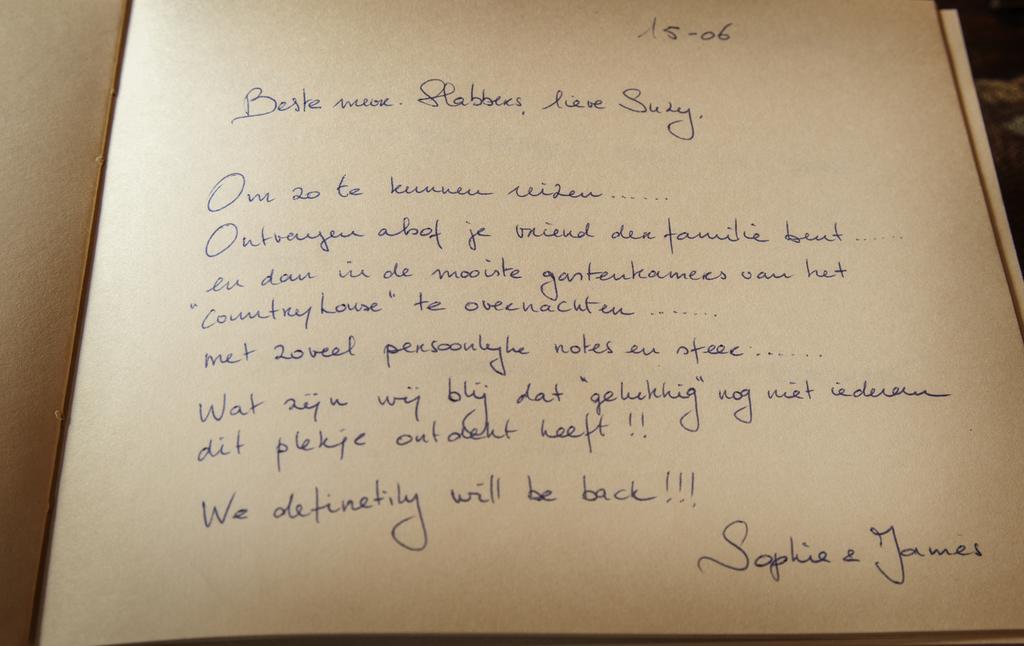 15-06
Beste mevr. Slabbers, lieve Suzy.
Om zo te kunnen reizen......
Ontvangen alsof je vriend der familie bent......
en dan in de mooiste gastenkamers van het
"Countryhouse" te overnachten.......
met zoveel persoonlijke notes en sfeer.......
Wat zijn wij blij dat "gelukkig" nog niet iedereen
dit plekje ontdekt heeft !!
We definetily will be back!!!
Sophie & James